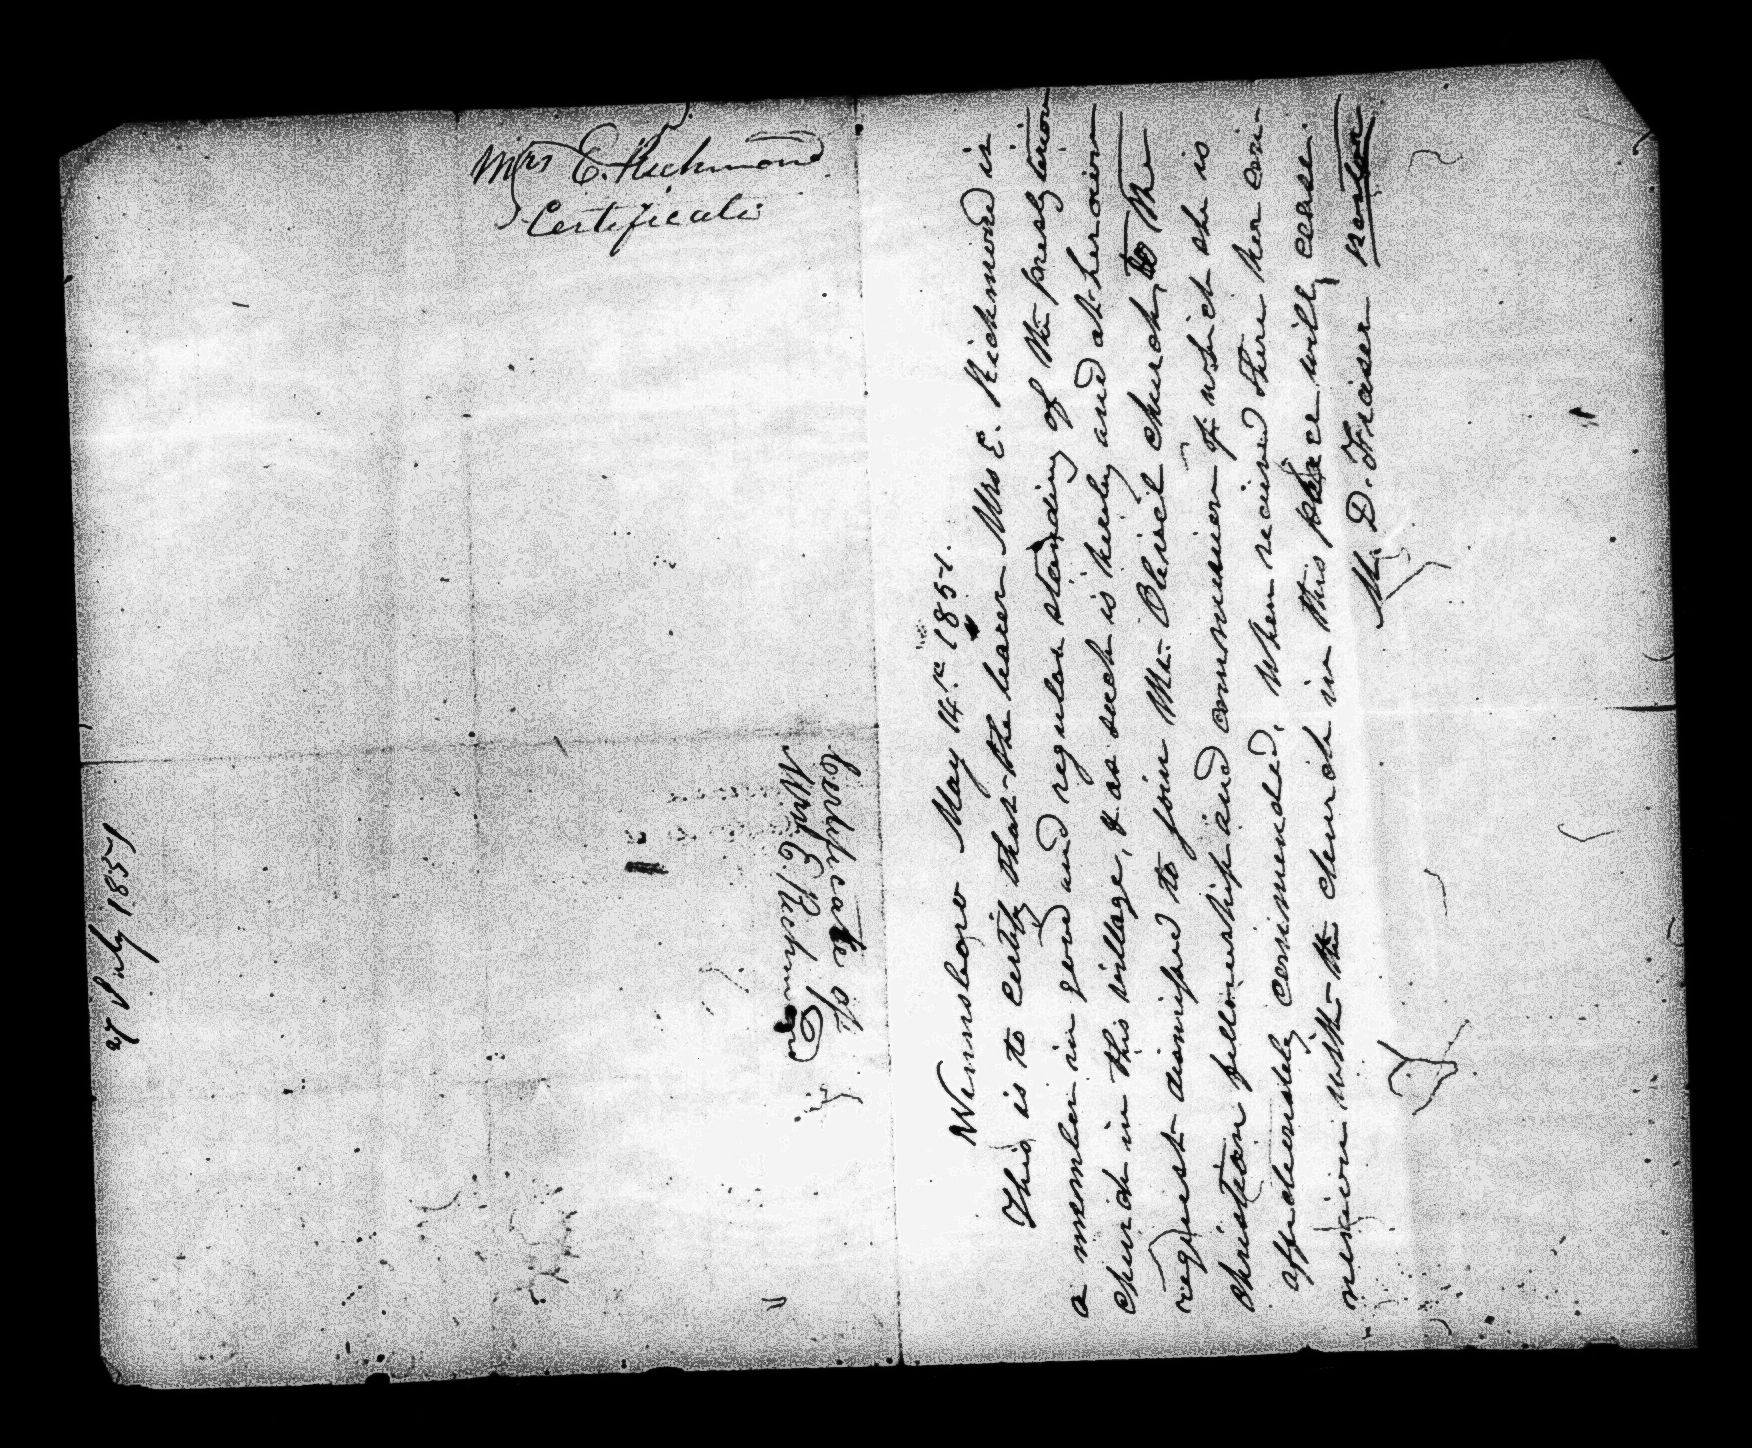 Mrs E. Richmond
Certificate
Certificate of
Mrs E. Richmond
27 July 1851
Winnsboro May 14th 1851.
This is to certify that the bearer Mrs E. Richmond is
a member in good and regular standing of the presbyterian
church in this village, & as such is hereby and at her own
request dismissed to join Mt. Olivet church, to the
christian fellowship and communion of which she is
affectionately commended. When received there her con-
nexion with the church in this place will cease.
M. D. Fraser pastor